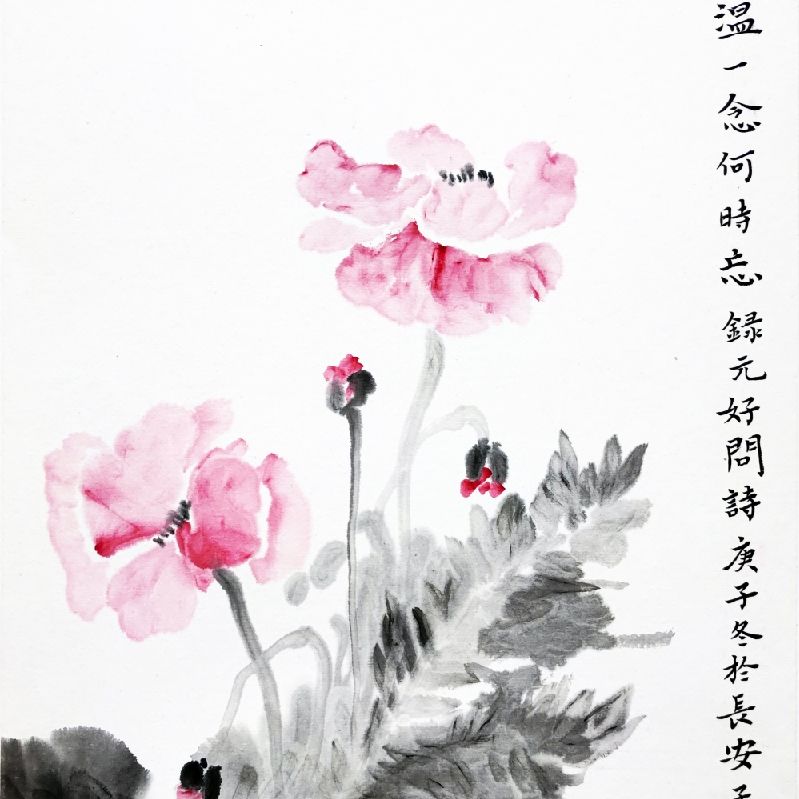 温一念何時忘 録元好問詩 庚子冬於長安